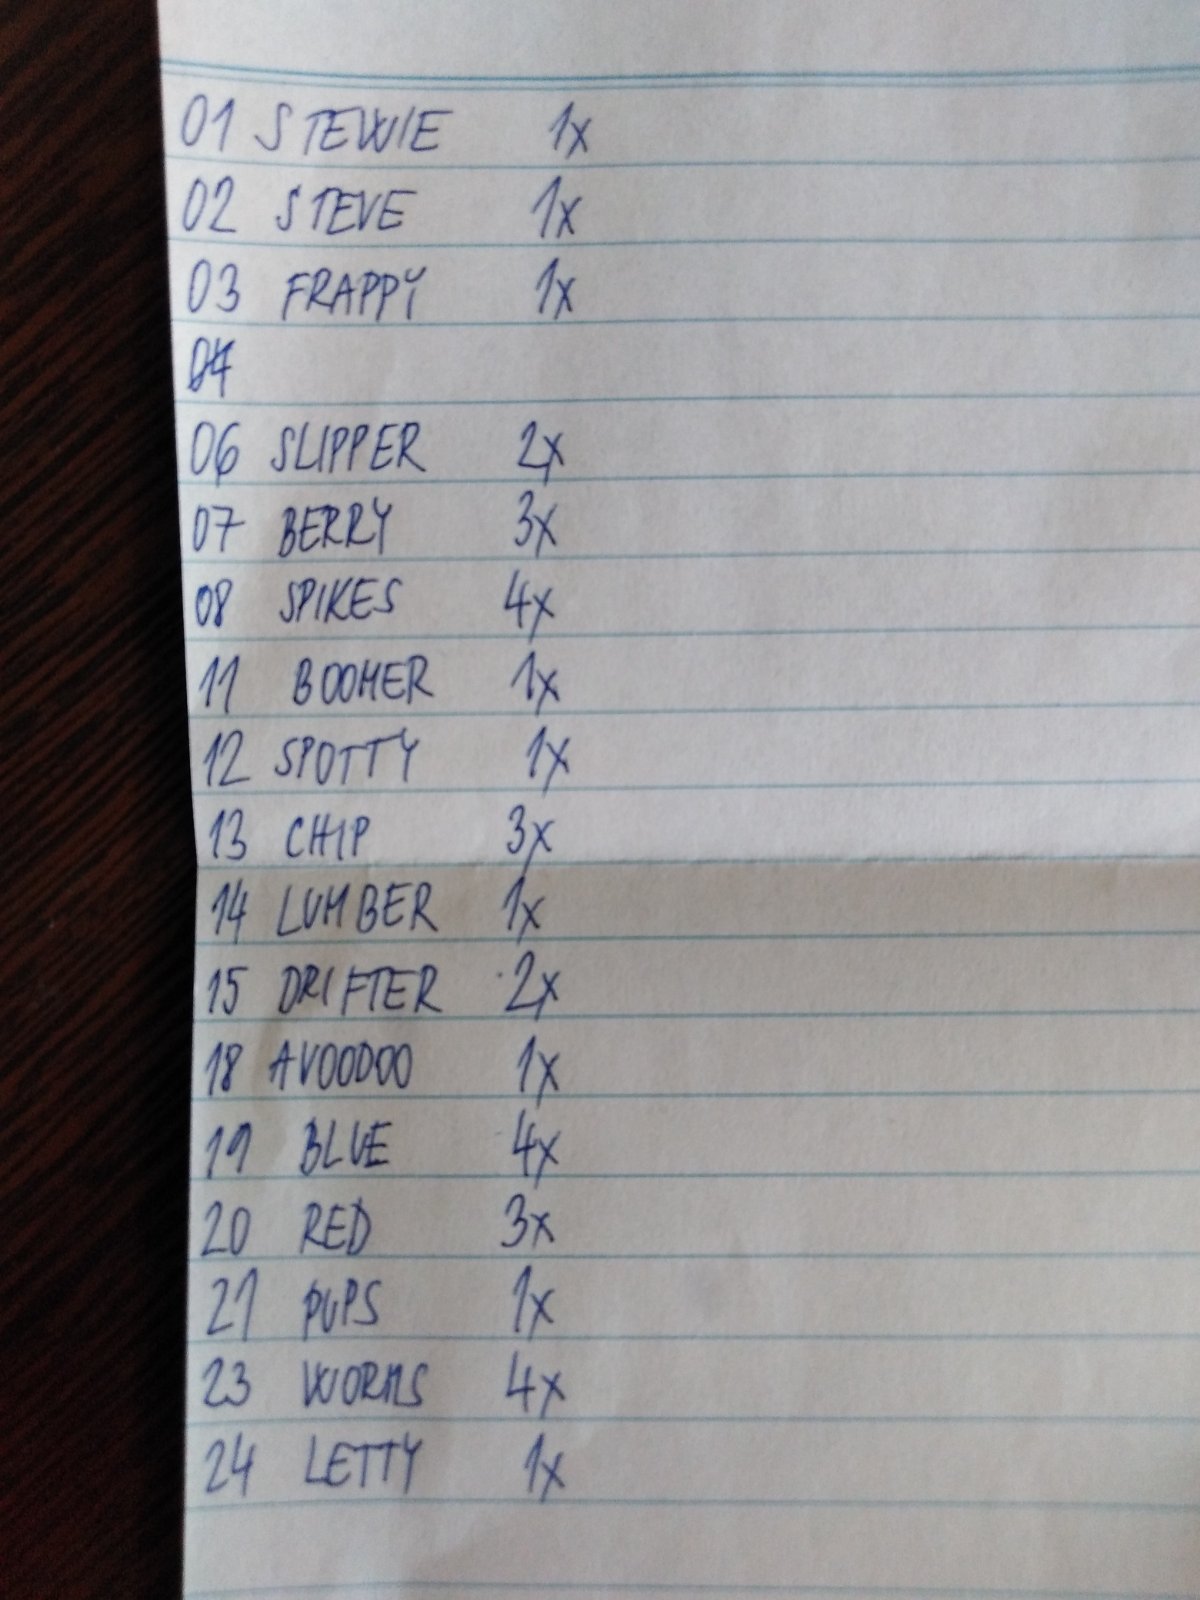 01 STEWIE 1x
02 STEVE 1x
03 FRAPPY 1x
04
06 SLIPPER 2x
07 BERRY 3x
08 SPIKES 4x
11 BOOMER 1x
12 SPOTTY 1x
13 CHIP 3x
14 LUMBER 1x
15 DRIFTER 2x
18 AVOODOO 1x
19 BLUE 4x
20 RED 3x
21 PUPS 1x
23 WORMS 4x
24 LETTY 1x